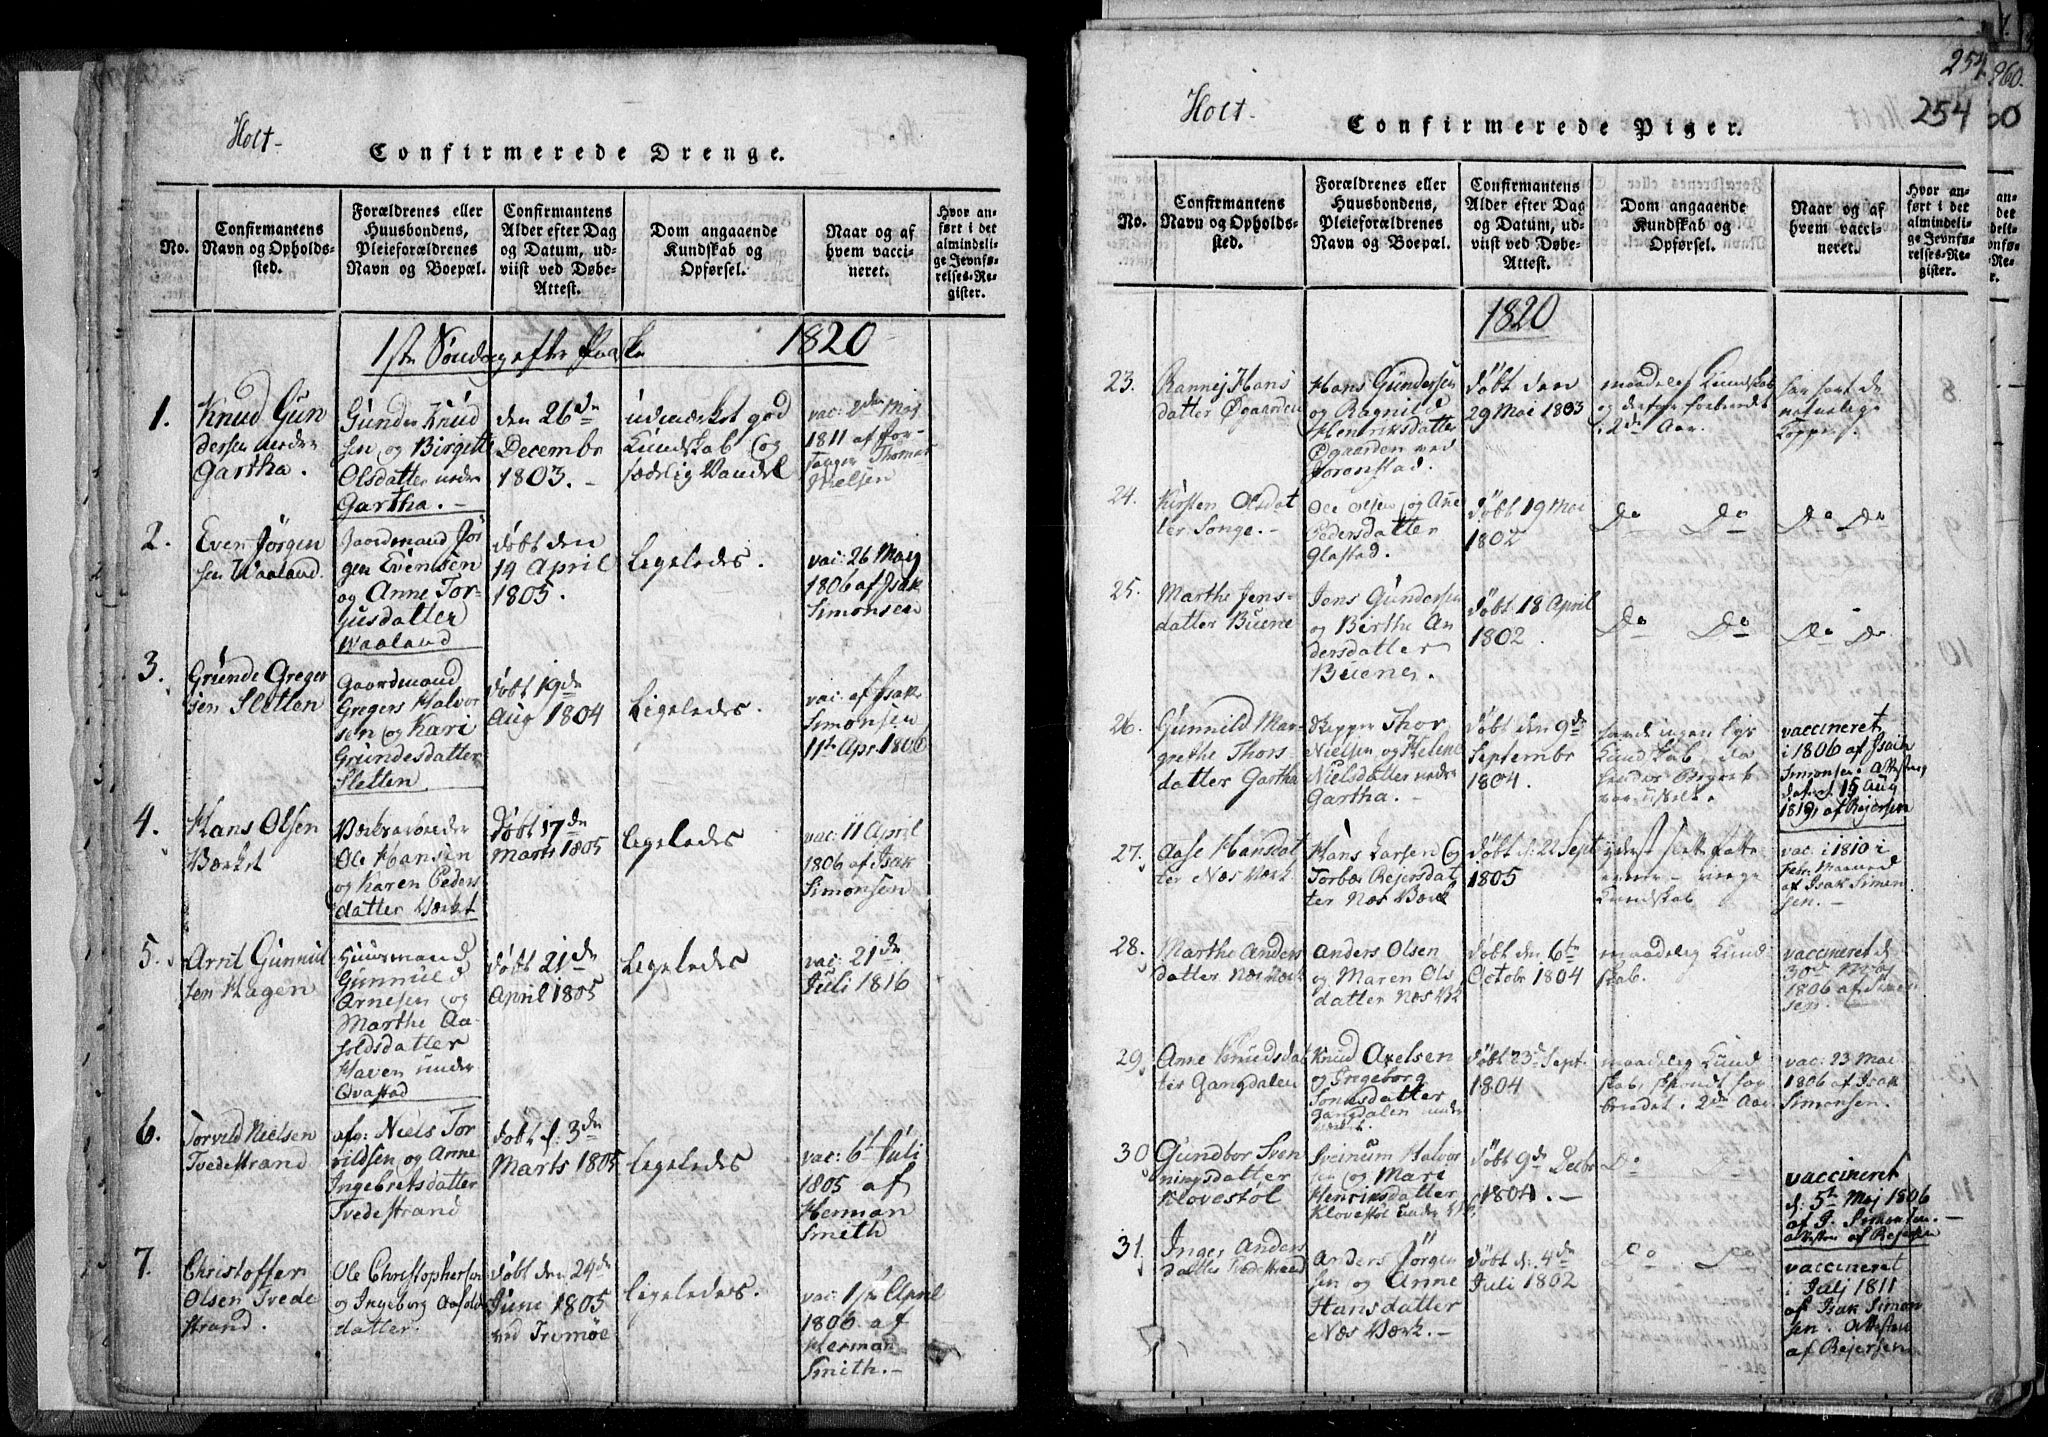 Holt-
Confirmerede Drenge.
No.
Confirmantens
Navn og Opholds-
sted.
Forældrenes eller
Huusbondens,
Pleieforældrenes
Navn og Boepæl.
Confirmantens
Alder efter Dag
og Datum, ud-
viist ved Døbe-
Attest.
Dom angaaende
Kundskab og
Opførsel.
Naar og af
hvem vacci-
neret.
Hvor an-
ført i det
almindeli-
ge Jevnfø-
relses-Re-
gister.
1ste Søndag efter Paaske 1820
1.
Knud Gun
dersen nedre
Gartha.
Gunder Knud
sen og Birgitte
Olsdatter nedre
Gartha.-
den 26de
Decembr
1803.-
udmærket god
Kundskab og
sædelig Vandel
vac: 2den Maj
1811 af For-
sanger Thomas
Nielsen
2.
Even Jørgen
sen Waaland.
Gaardmand Jør
gen Evensen
og Anne Tor-
jusdatter
Waaland
døbt den
14 April
1805.
Ligeledes.
vac: 26 Maj
1806 af Isak
Simonsen
3.
Grunde Greger
sen Sletten
Gaardmand
Gregers Halvor
sen og Kari
Grundesdatter
Sletten
døbt 19de
Aug 1804
Ligeledes.
vac: af Isak
Simonsen
11te Apr. 1806
4.
Hans Olsen
Værket
Ole Hansen
og Karen Peders
datter Værket
Døbt 17de
Marts 1805
Ligeledes
vac: 11 April
1806 af Isak
Simonsen
5.
Arnt Gunnuld
sen Hagen
Huusmand
Gunnuld
Arnesen og
Marthe Aa-
soldsdatter
Haven under
Qvastad
døbt 21de
April 1805
Ligeledes
vac: 21de
Juli 1816
6.
Torvild Nielsen
Tvedestrand
afg: Niels Tor
vildsen og Anne
Ingebretsdatter
Tvedestrand
døbt d: 3de
Marts 1805
Ligeledes
vac: 6te Juli
1805 af
Herman
Smith
7.
Christoffer
Olsen Tvede
strand.
Ole Christophersen
og Ingeborg Aasolds
datter.
Døbt den 24de
Juni 1805
ved Tromøe
Ligeledes.
vac: 1ste April
1806 af
Herman
Smith.-
254
254
Holt-
Confirmerede Piger.
No.
Confirmantens
Navn og Opholds-
sted.
Forældrenes eller
Huusbondens,
Pleieforældrenes
Navn og Boepæl.
Confirmantens
Alder efter Dag
og Datum, ud-
viist ved Døbe-
Attest.
Dom angaaende
Kundskab og
Opførsel.
Naar og af
hvem vacci-
neret.
Hvor an-
ført i det
almindeli-
ge Jevnfø-
relses-Re-
gister.
1820
23.
Rannej Hans
datter Øgaarden
Hans Gundersen
og Ragnild
Henriksdatter
Øgaarden ved
døbt den
29 Mai 1803
maadelig Kundskab
og derfor forberedet
i 2de Aar.
har havt de
naturlige
Kopper.
24.
Kirsten Olsdat
ter Songe.-
Ole Olsen og Ane
Pedersdatter
Glastad.
døbt 19 Mai
1802
Do Do
Do Do
25.
Marthe Jens-
datter Buene
Jens Gundersen
og Birthe An
dersdatter
Buene.
døbt 18 April
1802.
Do Do
Do Do
26.
Gunnild Mar-
grethe Thors-
datter Gartha
Skipper Thor
Nielsen og Helene
Nielsdatter nedre
Gartha.-
døbt den 9de
Septembr
1804.
vaccineret
i 1806 af Isach
Simonsen: Attesten
dateret 15 Aug
1819, af Rejersen
27.
Aase Hansdat
ter Næs Værk.
Hans Larsen og
Torbør Rejersdat
ter Næs Værk
døbt d: 22 Sept
1805
yderst slett fatte
evne - ringe
Kundskab
vac: i 1810 i
Febr: Maaned
af Isak Simon
sen.-
28.
Marthe Anders
datter Næs Værk
Anders Olsen
og Maren Ols
datter Næs Vk
døbt den 6te
Octobr 1804
maadelig Kund
skab.
vaccineret d
30te Maj
1806 af Simon
sen.-
29.
Anne Knudsdat
ter Gangdalen
Knud Axelsen
og Ingeborg
Tønnesdatter
Gangdalen under
Værket.
døbt 23de Sept.
1804
maadelig Kund
skab, skjøndt for
beredet i 2de Aar.
vac: 23 Mai
1806 af Isak
Simonsen.
30
Gundbor Sven
ningsdatter
Kløvestøl
Sveinum Halvor
sen og Mari
Henriksdatter
Kløvestøl under Vk.
døbt 9de Decbr
1804.-
Do Do
vaccineret
d: 5te Maj 1806
af I. Simonsen.-
Attesten af Rejersen
31.
Inger Anders
datter Tvedestrand
Anders Jørgen
sen og Anne
Hansdatter
Næs Værk.-
døbt d. 4de
Juli 1802
Do Do
vaccineret
i Julj 1811
af Isak Simon
sen. Attesten
af Rejersen